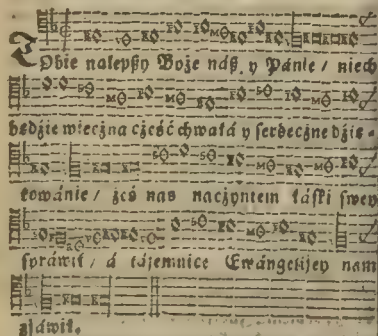 Tobie nalepßy Boże náß, y Pánie / niech
będźie wieczna cżeść chwałá y serdecżne dźię-
kowánie / żeś nas nacżyniem łáski swey
spráwił / á tájemnice Ewángelijey nam
zjáwił.